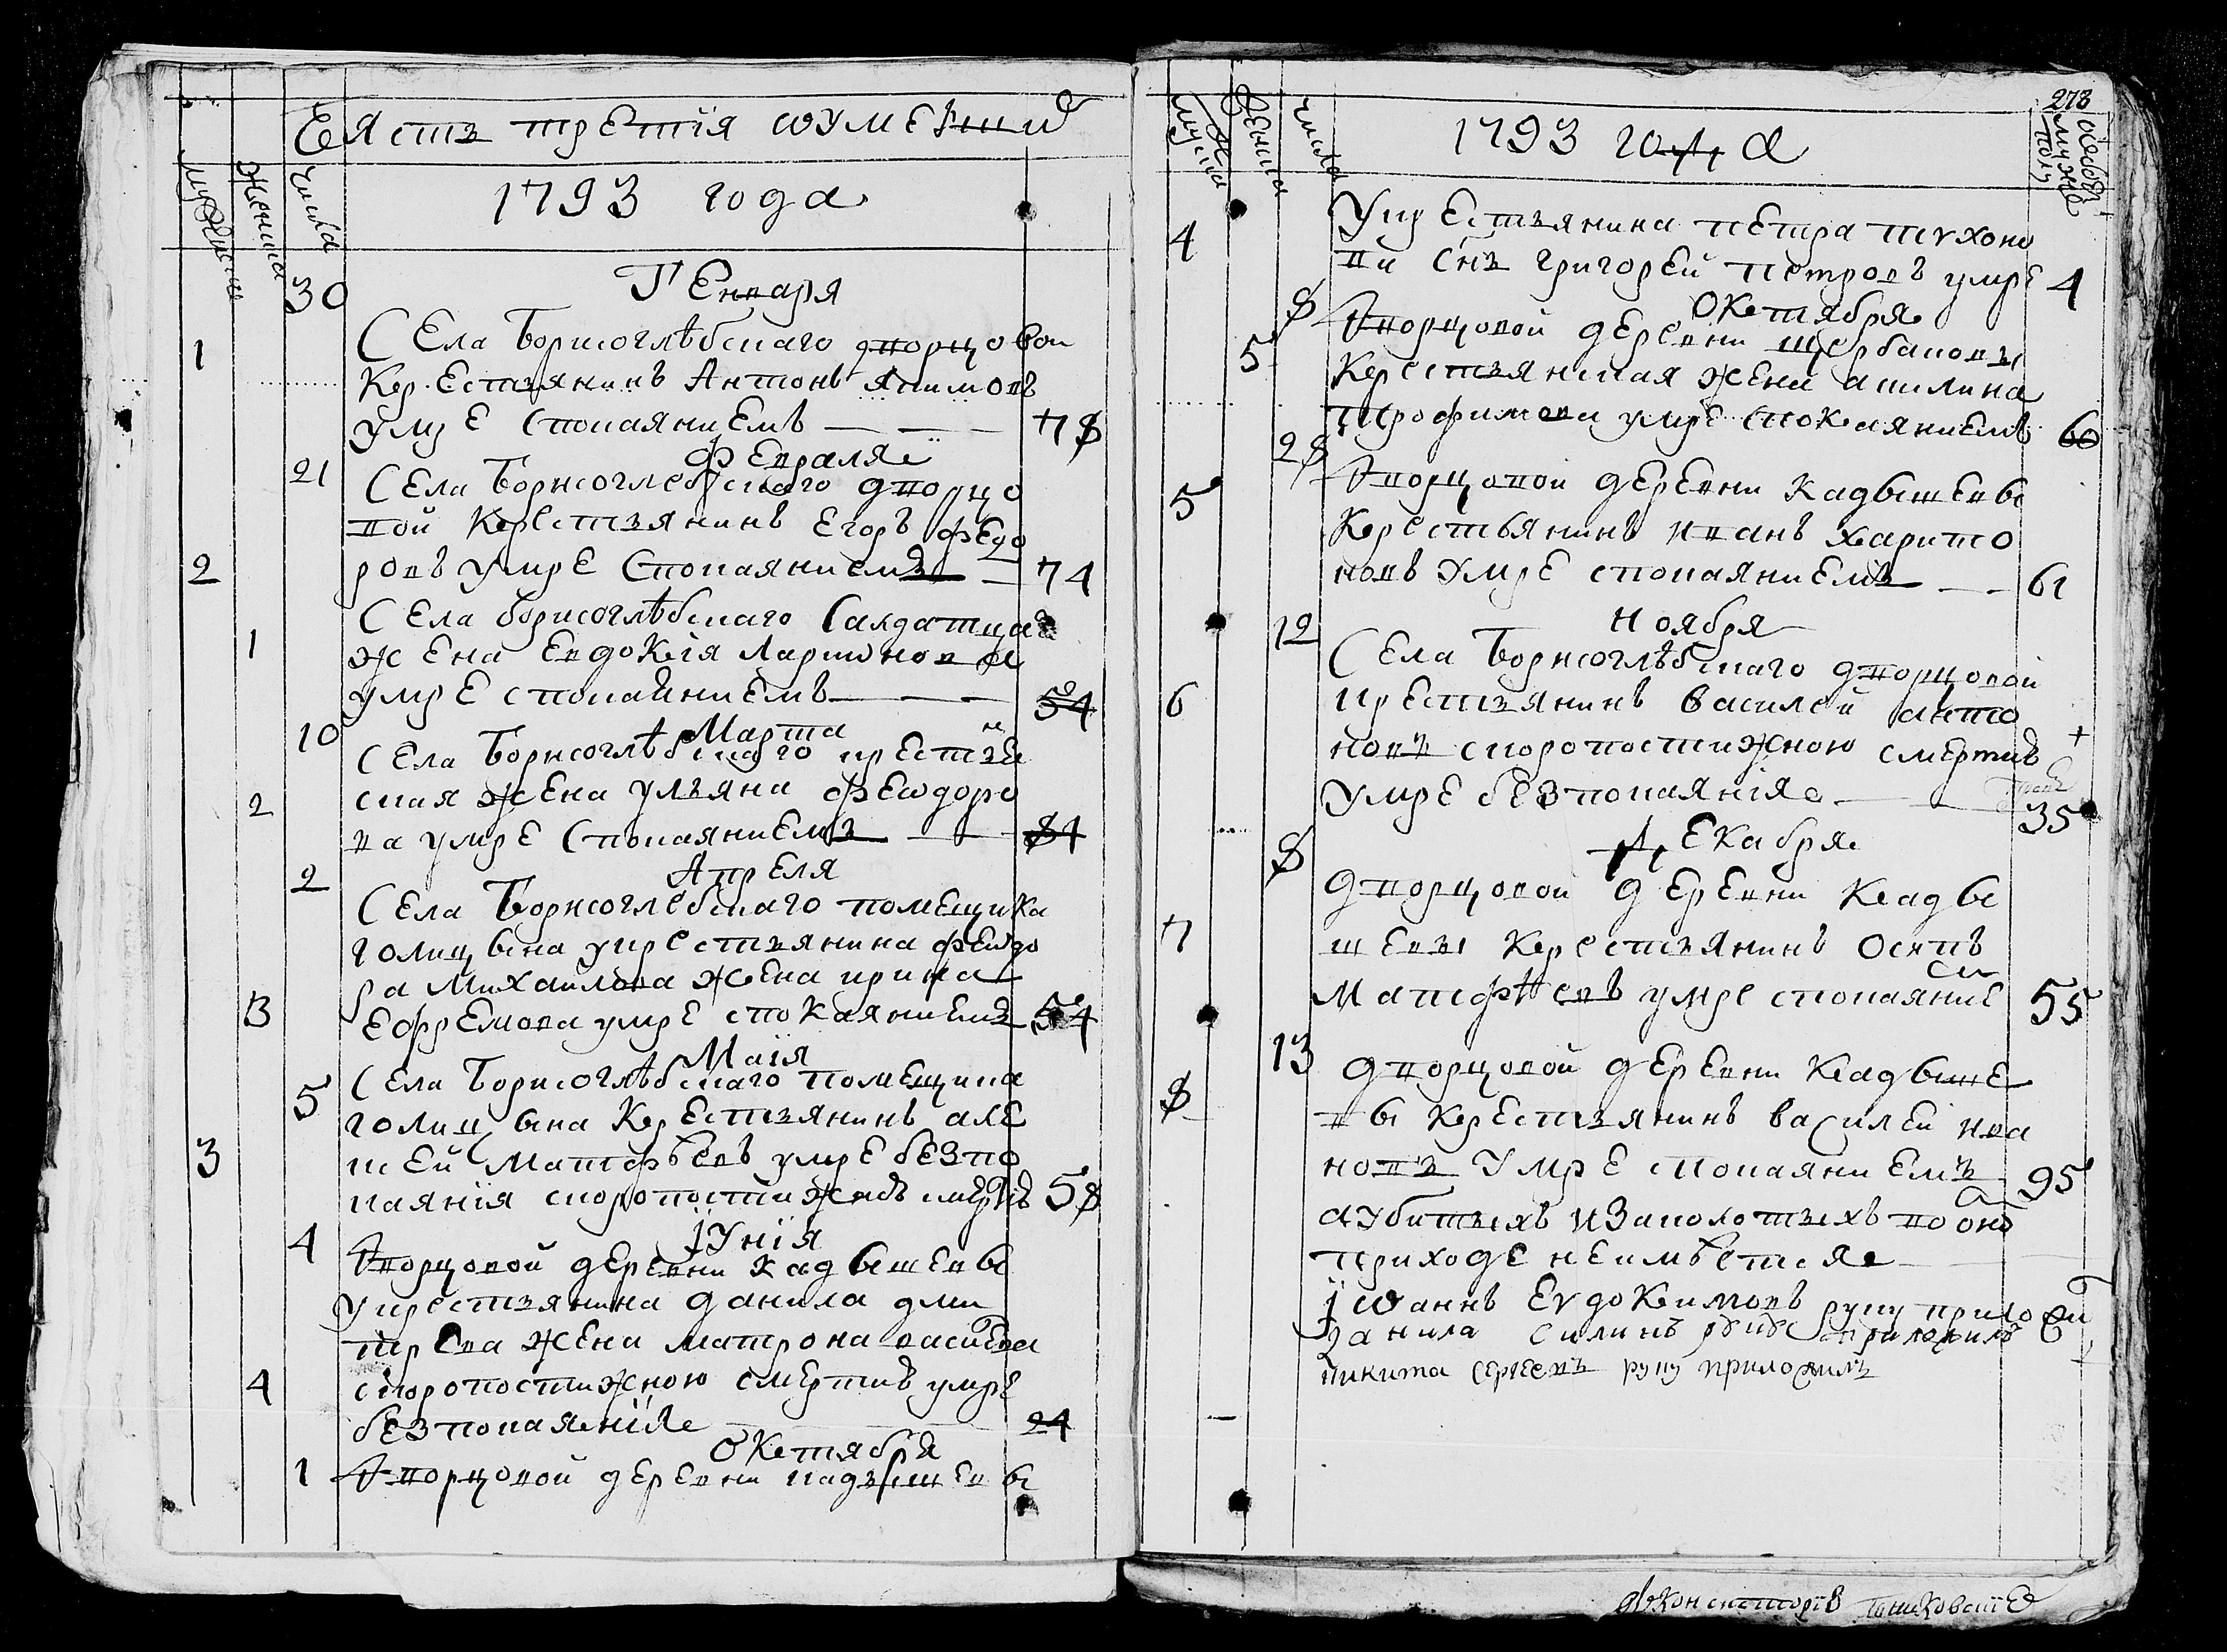 Часть третїя ѡумерши
мужеска
женска
числа
1793 года
Генваря
30
Села Борисоглѣбскаго дворцовои
1
Крестьянинъ Антонъ Якимовъ
умре спокаяниемъ 78
Февраля
21
Села Борисоглебскаго дворцо
вой крестьянинъ Егоръ Федо
2
ровъ умре спокаяниемъ 74
Села борисоглѣбскаго салдатцка
1
жена Евдокїя Ларионова
умре спокаяниемъ 54
Марта
10
Села Борисоглѣбскаго крестьян
2
ская жена ульяна феѡдоро
ва умре спокаяниемъ 84
Апреля
2
Села Борисоглебскаго помещика
голицына у крестьянина феѡдо
ра Михаилова жена ирина
3
Ефремова умре спокаяниемъ 54
Маїя
5
Села Борисоглѣбскаго помещика
голицына крестьянинъ але
3
ксей Матфѣевъ умре безпо
каянїя скоропостижною смертїю 58
Їунїя
4
Дворцовой деревни кадышевы
у крестьянина данила дми
трева жена матрона василева
4
скоропостижною смертию умре
без покаянїя 24
Октября
1
Дворцовой деревни кадышевы
273
1793 года
мужска
женска
числа
4
у крестьянина петра тихоно
ва снъ григорей петровъ умре 4
Октября
8
Дворцовой деревни щербаковы
5
крестьянская жена акилина
трофимова умре спокаяниемъ 60
28
Дворцовой деревни кадышевы
5
крестьянинъ иванъ харито
новъ умре спокаяниемъ 61
Ноября
12
Села Борисоглѣбскаго дворцовой
6
крестьянинъ василей анто
новъ скоропостижною смертию
умре без покаянїя 35
Декабря
8
дворцовой деревни кады
7
шевы крестьянинъ осипъ
Матфѣевъ умре спокаяние 55
13
дворцовой деревни кадыше
8
вы крестьянинъ василей ива
новъ умре спокаяниемъ 95
а убитыхъ и заколотыхъ во оно
приходе неимѣется
Їѡаннъ Евдокимовъ руку приложи
данила силинъ руку приложилъ
никита сергеевъ руку приложилъ